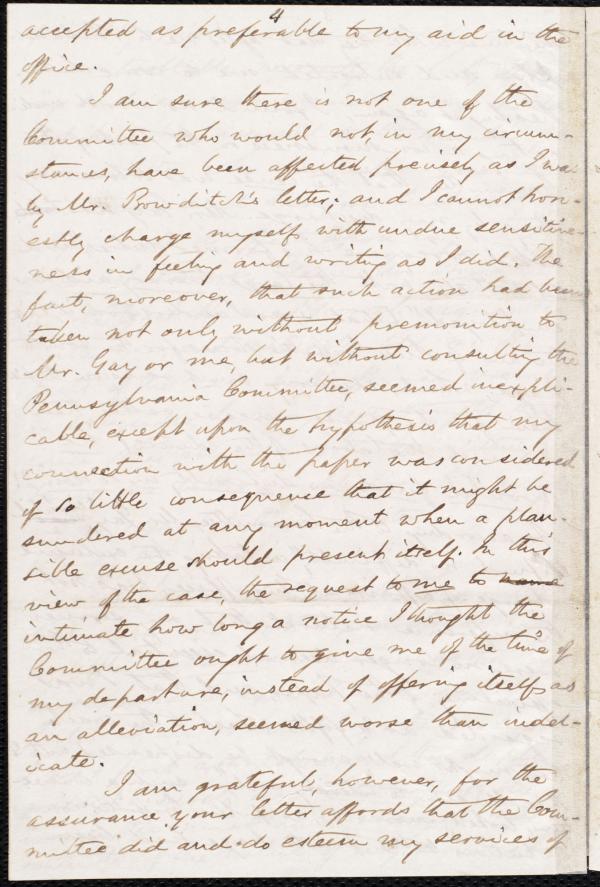 4
accepted as preferable to my aid in the
office.
I am sure there is not one of the
Committee who would not, in my circum-
stances, have been affected precisely as I was
by Mr. Bowditch's letter; and I cannot hon-
estly charge myself with undue sensitive-
ness in feeling and writing as I did. The
fact, moreover, that such action had been
taken not only without premonition to
Mr. Gay or me, but without consulting the
Pennsylvania Committee, seemed inexpli-
cable, except upon the hypothesis that my
connection with the paper was considered
of so little consequence that it might be
sundered at any moment when a plau-
sible excuse should present itself. In this
view of the case, the request to me to name
intimate how long a notice I thought the
Committee ought to give me of the time of
my departure, instead of offering itself as
an alleviation, seemed worse than indel-
icate.
I am grateful, however, for the
assurance your letter affords that the Com-
mittee did and do esteem my services of